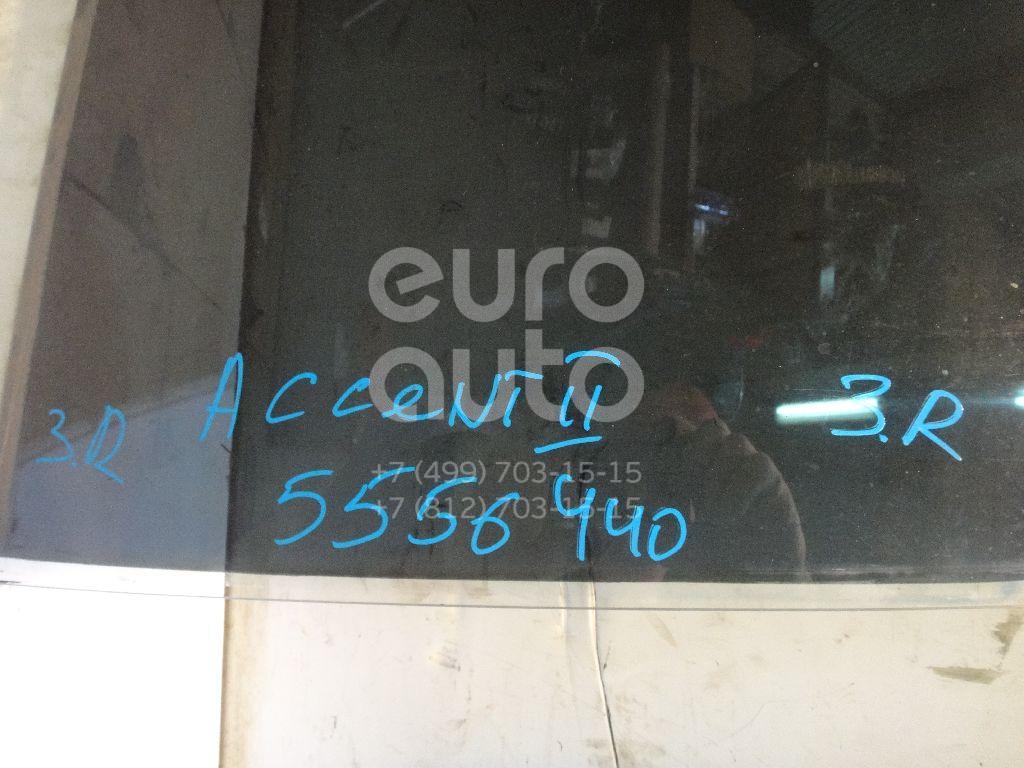 euro
auto
AccenT II
3.R 3.R
+7 (499) 703-15-15
5556440
+7 (812) 703-15-15